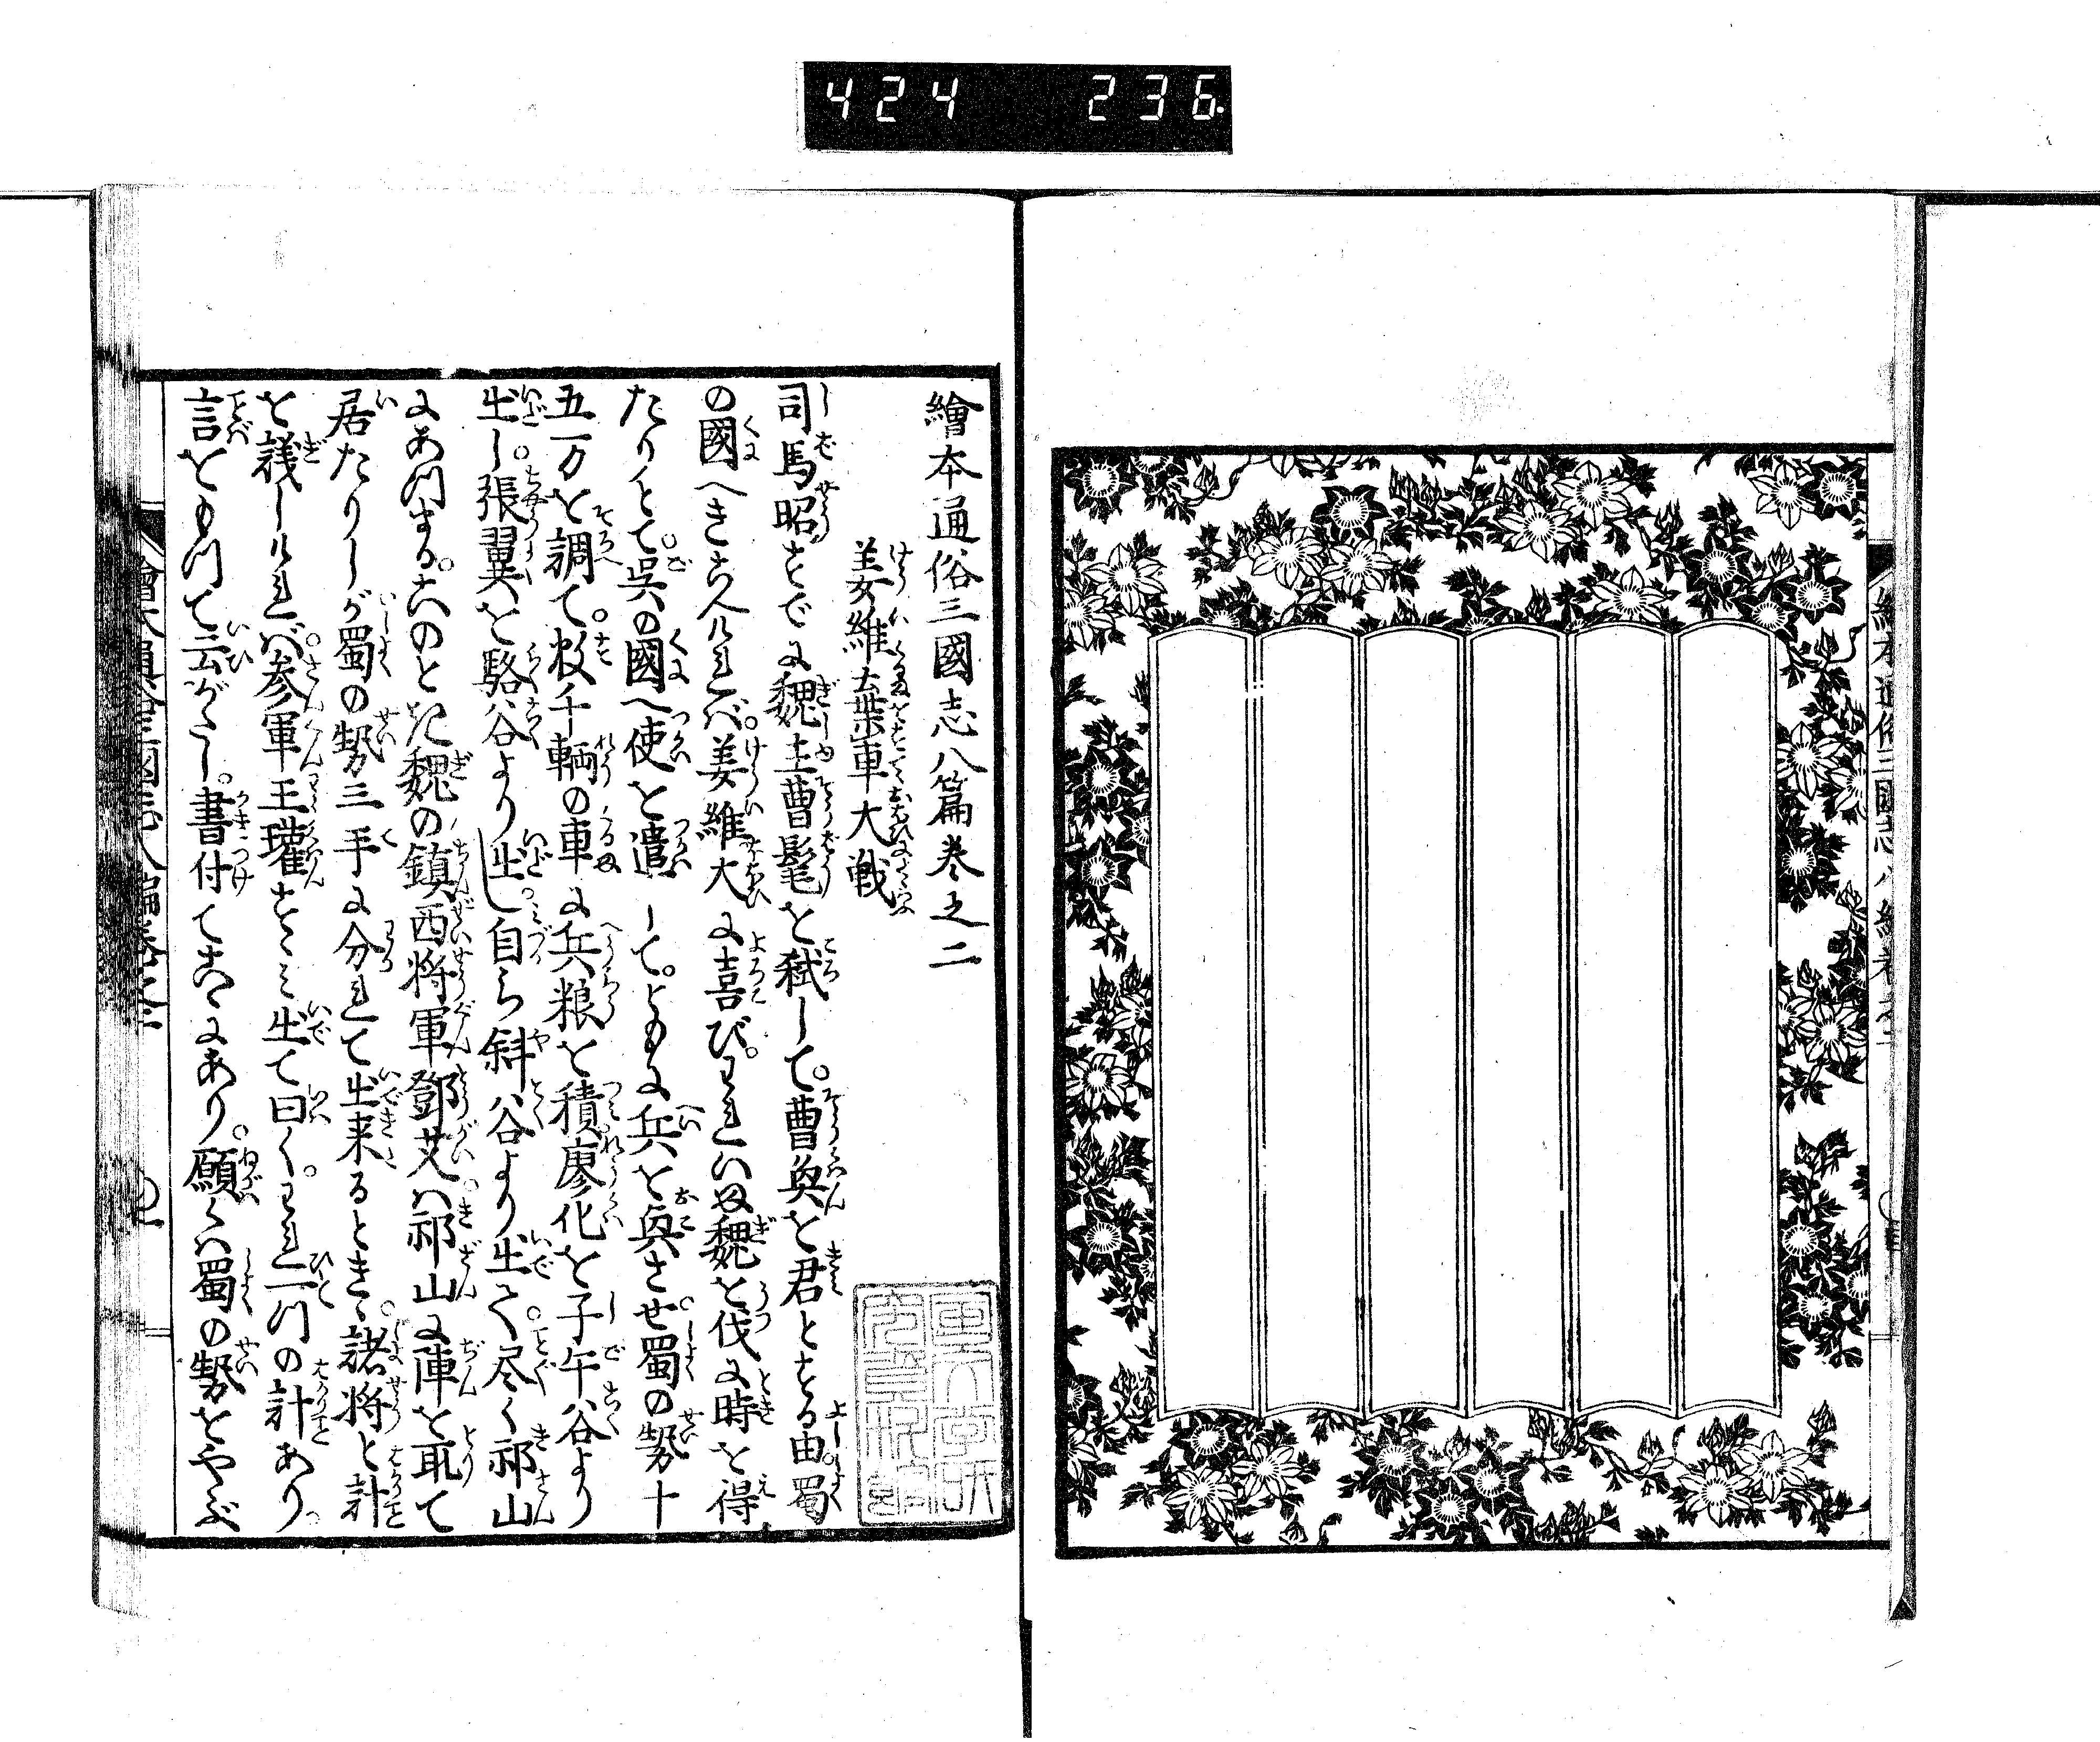 424 236
繪本通俗三國志八篇巻之二
姜維棄車大戦
司馬昭すでに魏主曹髦を弑して。曹奐を君とする由蜀
の國へきこへければ。姜維大に喜び。われいま魏を伐に時を得
たりとて。呉の國へ使を遣して。ともに兵を興させ蜀の勢十
五万を調て。数千輌の車に兵粮を積廖化を子午谷より
出し。張翼を駱谷より出し。自ら斜谷より出て。尽く祁山
にあつまる。このとき魏の鎮西将軍鄧艾ハ祁山に陣を取て
居たりしが蜀の勢三手に分れて出来るときゝ。諸将と計
を議しければ。参軍王瓘すゝみ出て曰く。われ一つの計あり。
言をもつて云がたし。書付てこゝにあり。願くハ蜀の勢をやぶ